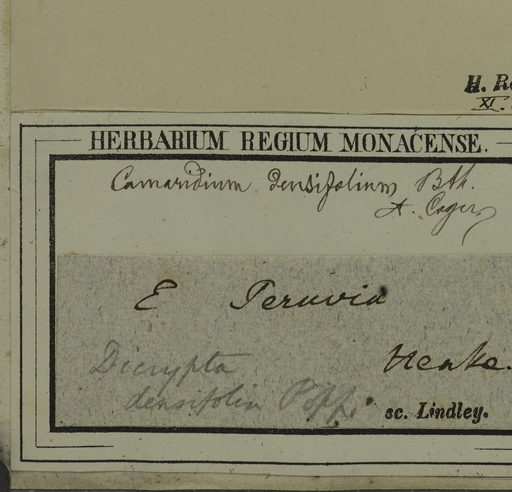 H. R
XI.
HERBARIUM REGIUM MONACENSE.
Camaridium densifolium Bth.
E Peruvia
Dicrypta
densifolia Popp.
sc. Lindley.